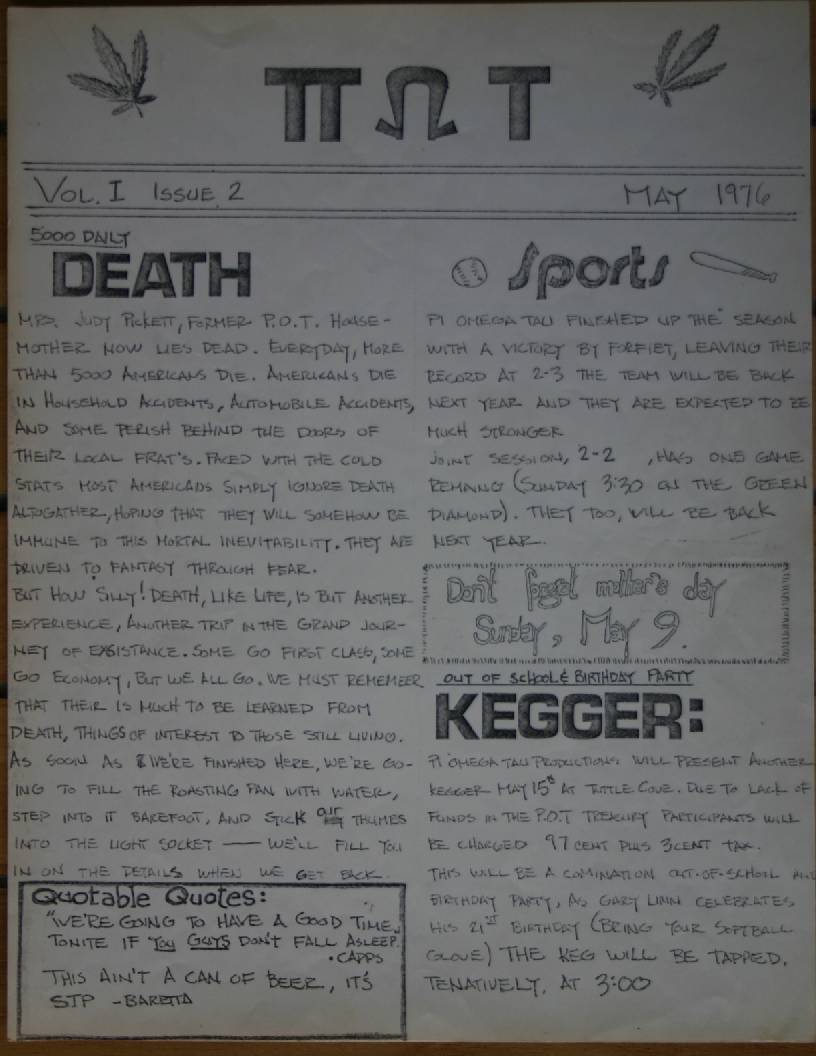 ΠΩΤ
VOL. I ISSUE 2
MAY 1976
5000 DAILY
DEATH
MRS. JUDY PICKETT, FORMER P.O.T. HOUSE-
MOTHER NOW LIES DEAD. EVERYDAY, MORE
THAN 5000 AMERICANS DIE. AMERICANS DIE
IN HOUSEHOLD ACCIDENTS, AUTOMOBILE ACCIDENTS,
AND SOME PERISH BEHIND THE DOORS OF
THEIR LOCAL FRAT'S. FACED WITH THE COLD
STATS MOST AMERICANS SIMPLY IGNORE DEATH
ALTOGATHER, HOPING THAT THEY WILL SOMEHOW BE
IMMUNE TO THIS MORTAL INEVITABILITY. THEY ARE
DRIVEN TO FANTASY THROUGH FEAR.
BUT HOW SILLY! DEATH, LIKE LIFE, IS BUT ANOTHER
EXPERIENCE, ANOTHER TRIP IN THE GRAND JOUR-
NEY OF EXSISTANCE. SOME GO FIRST CLASS, SOME
GO ECONOMY, BUT WE ALL GO. WE MUST REMEMEER
THAT THEIR IS MUCH TO BE LEARNED FROM
DEATH, THINGS OF INTEREST TO THOSE STILL LIVING.
AS SOON AS WE'RE FINISHED HERE, WE'RE GO-
ING TO FILL THE ROASTING PAN WITH WATER,
STEP INTO IT BAREFOOT, AND STICK OUR THUMBS
INTO THE LIGHT SOCKET — WE'LL FILL YOU
IN ON THE DETAILS WHEN WE GET BACK.
Quotable Quotes:
"WE'RE GOING TO HAVE A GOOD TIME
TONITE IF YOU GUYS DON'T FALL ASLEEP.
• CAPPS
THIS AIN'T A CAN OF BEER, IT'S
STP - BARETTA
Sports
PI OMEGA TAU FINISHED UP THE SEASON
WITH A VICTORY BY FORFIET, LEAVING THEIR
RECORD AT 2-3 THE TEAM WILL BE BACK
NEXT YEAR AND THEY ARE EXPECTED TO BE
MUCH STRONGER
JOINT SESSION, 2-2 , HAS ONE GAME
REMANING (SUNDAY 3:30 ON THE GREEN
DIAMOND). THEY TOO, WILL BE BACK
NEXT YEAR.
Don't forget mother's day
Sunday, May 9.
OUT OF SCHOOL & BIRTHDAY PARTY
KEGGER:
PI OMEGA TAU PRODUCTIONS WILL PRESENT ANOTHER
KEGGER MAY 15th AT TUTTLE COVE. DUE TO LACK OF
FUNDS IN THE P.O.T TREASURY PARTICIPANTS WILL
BE CHARGED 97 CENT PLUS 3CENT TAX.
THIS WILL BE A COMINATION OUT-OF-SCHOOL AND
BIRTHDAY PARTY, AS GARY LINN CELEBRATES
HIS 21ST BIRTHDAY (BRING YOUR SOFTBALL
GLOVE) THE KEG WILL BE TAPPED,
TENATIVELY, AT 3:00